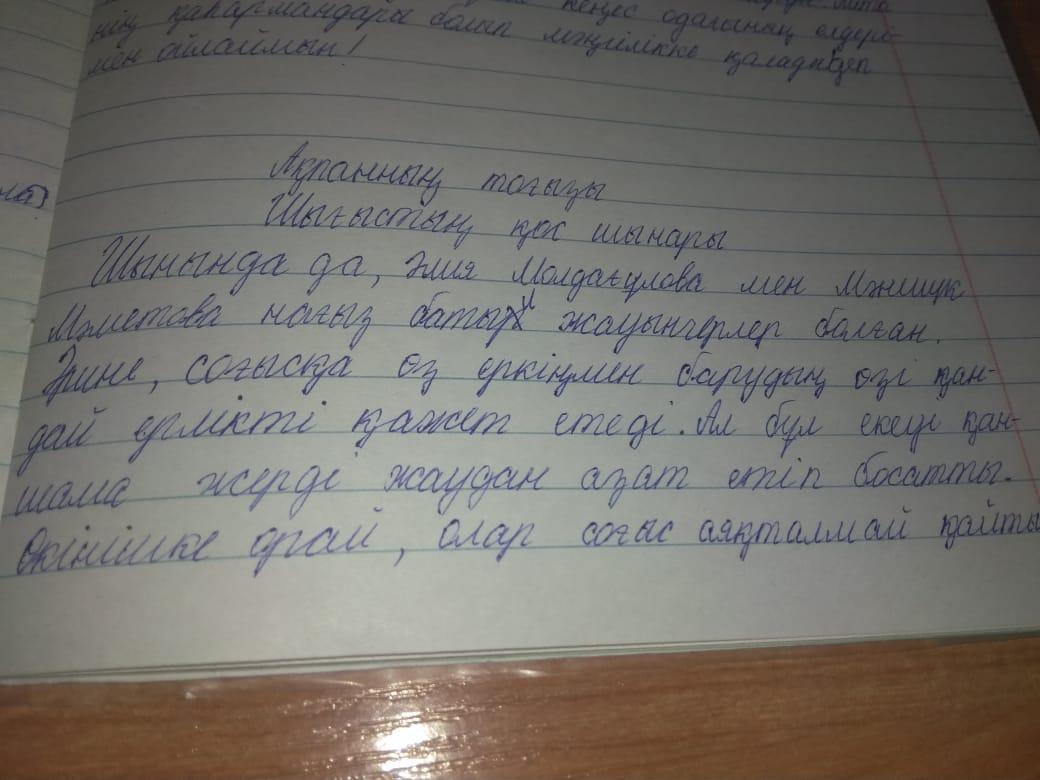 кеңес одағының елдері-
нің қаһармандары болып мәңгілікке қалады деп
мен ойлаймын!
Ақпанның тоғызы
Шығыстың қос шынары
Шынында да, Әлия Молдағұлова мен Мәншүк
Мәметова нағыз батыр жауынгерлер болған.
Әрине, соғысқа өз еркіңмен барудың өзі қан-
дай ерлікті қажет етеді. Ал бұл екеуі қан-
шама жерді жаудан азат етіп босатты.
Өкінішке орай, олар соғыс аяқталмай қайты